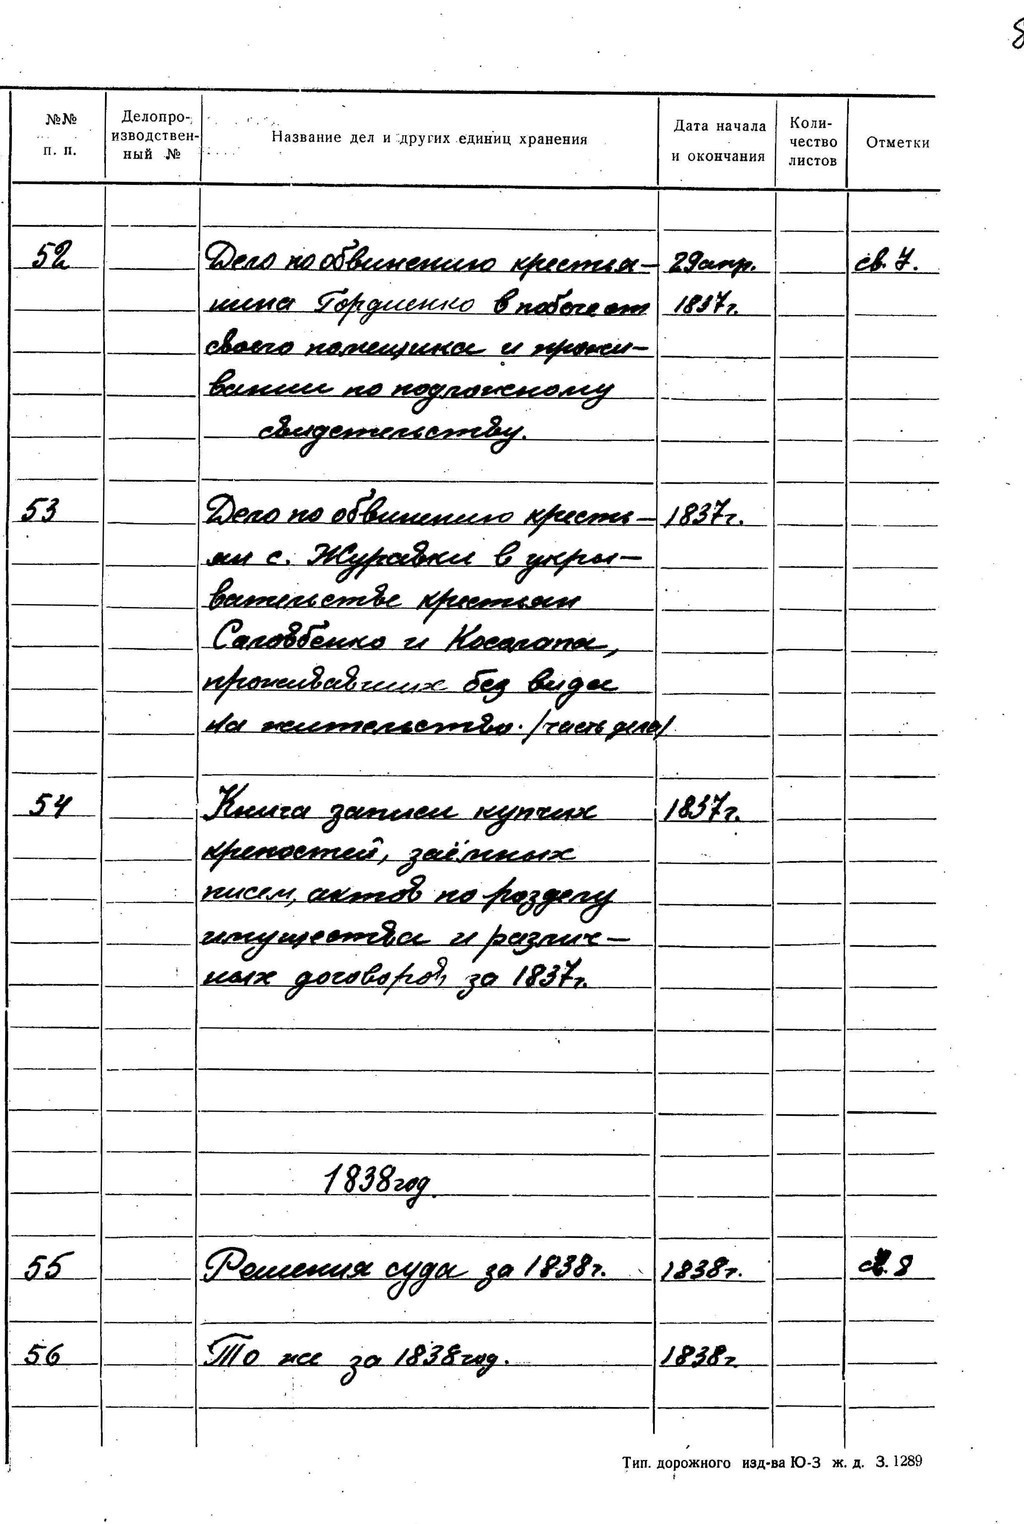 8
№№ п. п.
Делопроизводственный №
Название дел и других единиц хранения
Дата начала и окончания
Количество листов
Отметки
52 Дело по обвинению крестья- 29 апр. св. 7.
нина Гордиенко в побеге от 1837г.
своего помещика и прожи-
вании по подложному
свидетельству.
53 Дело по обвинению кресть- 1837г.
ян с. Журавки в укры-
вательстве крестьян
и Косолапа,
проживавших без вида
на жительство. /часть дела/
54 Книга записи купчих 1837г.
крепостей, заёмных
писем, актов по разделу
имущества и различ-
ных договоров за 1837г.
1838 год.
55 Решения суда за 1838г. 1838г. св. 8
56 То же за 1838 год. 1838г.
Тип. дорожного изд-ва Ю-З ж. д. З. 1289